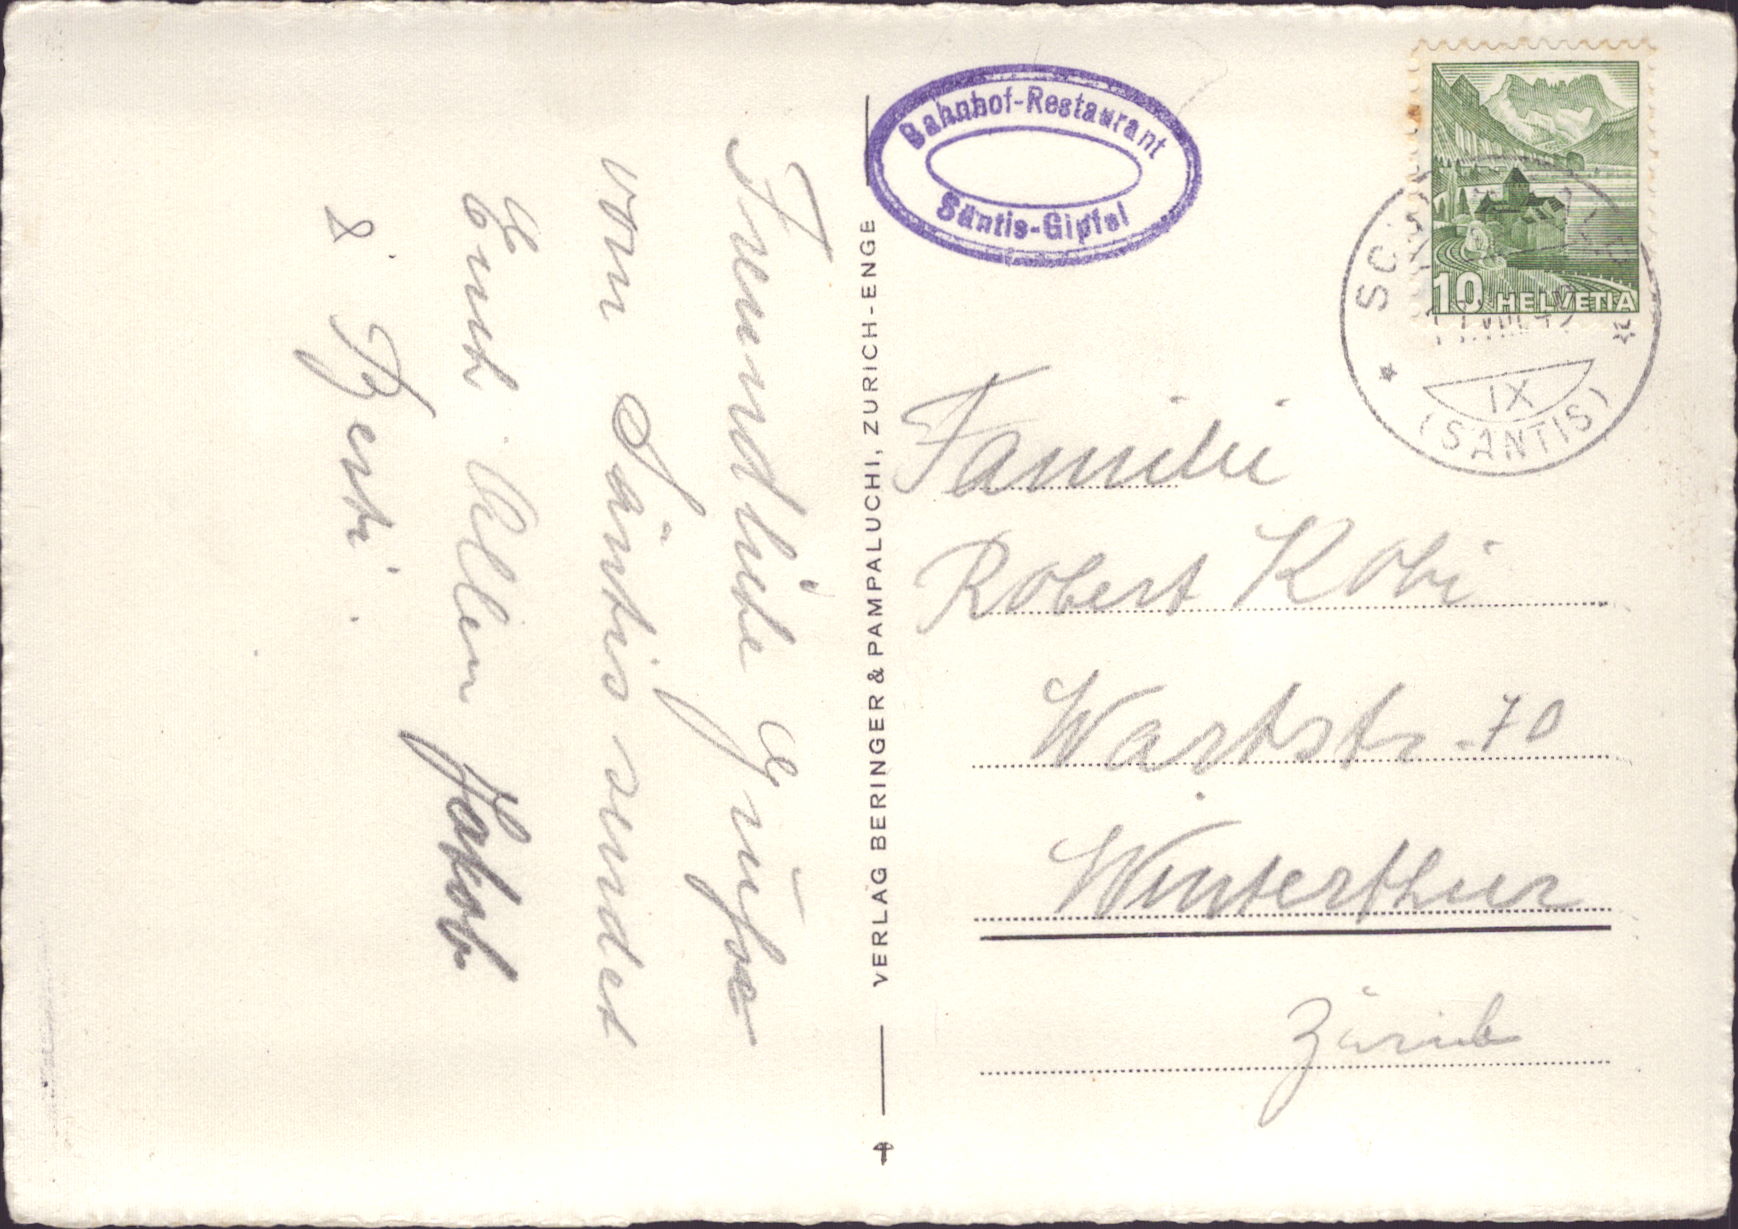 Freundliche Grüsse
von Säntis sendet
Euch Allen Jakob
& Berti.
VERLAG BERINGER & PAMPALUCHI, ZURICH-ENGE
Bahnhof-Restaurant
Säntis-Gipfel
10 HELVETIA
IX
(SÄNTIS)
Familie
Robert Kobi
Wartstr. 70
Winterthur
Zürich